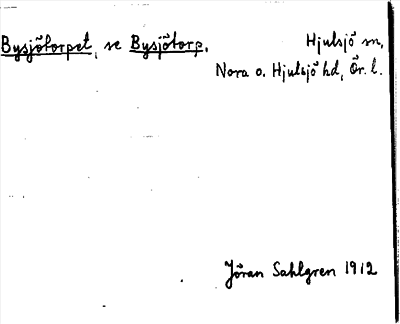 Bysjötorpet, se Bysjötorp. Hjulsjö sn,
Nora o. Hjulsjö hd, Ör. l.
Jöran Sahlgren 1912